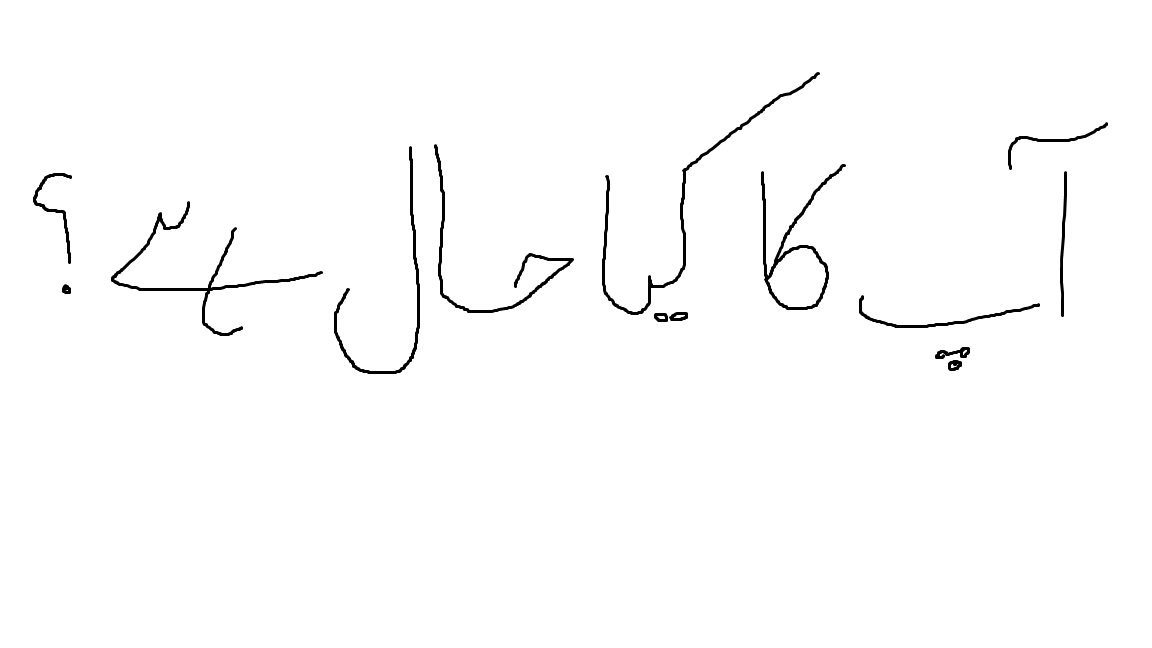 آپ کا کیا حال ہے؟